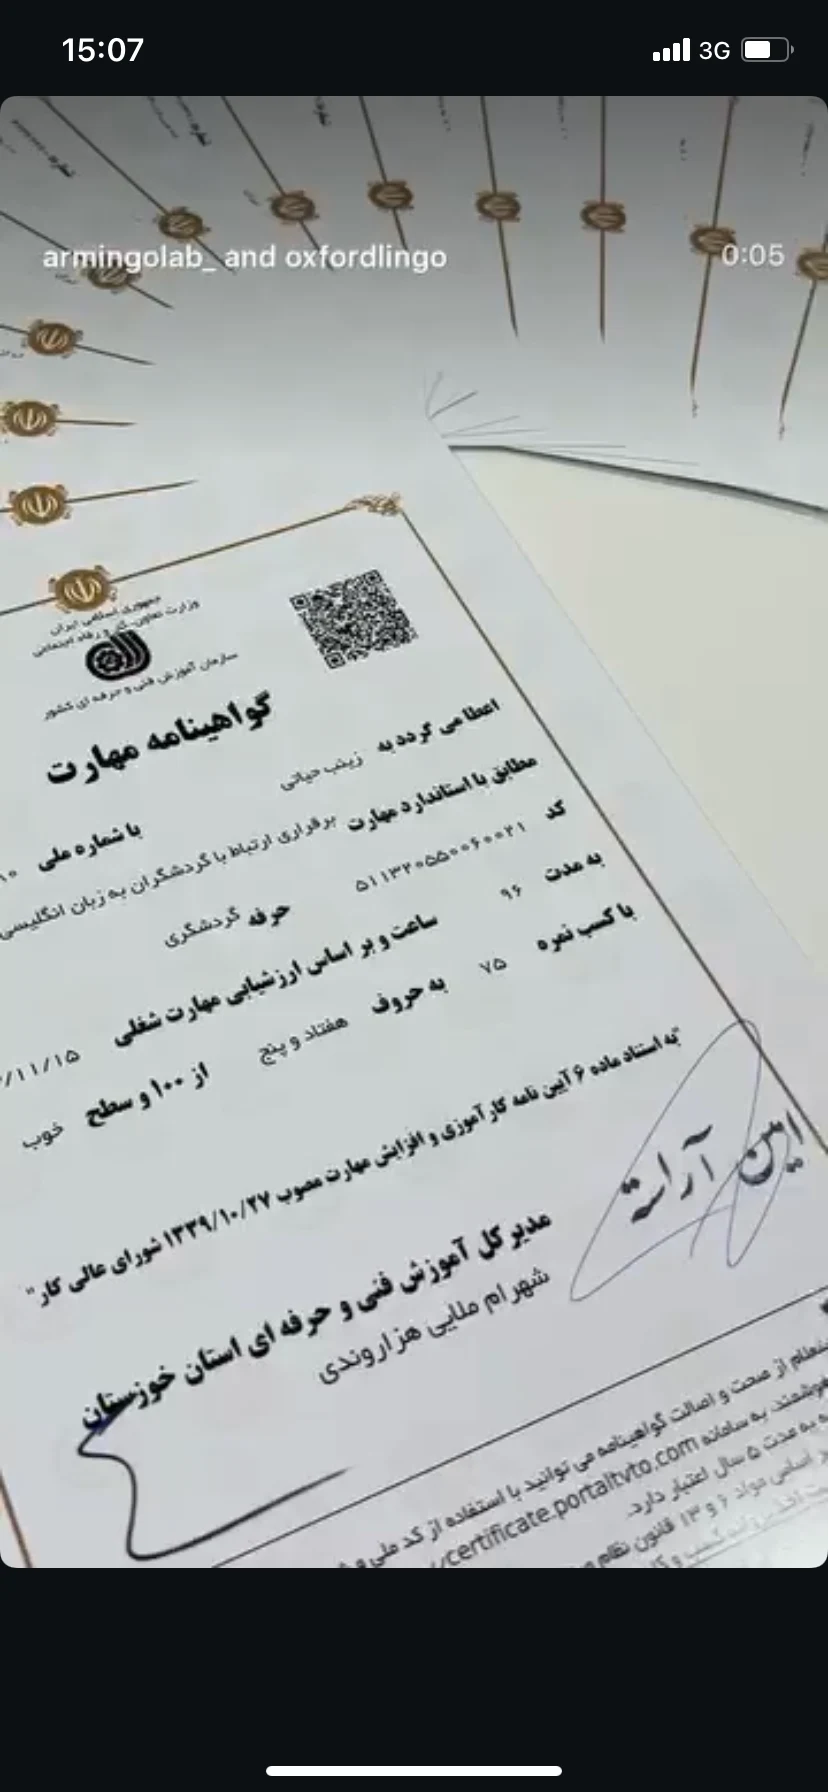 15:07
3G
armingolab_ and oxfordlingo
0:05
جمهوری اسلامی ایران
وزارت تعاون، کار و رفاه اجتماعی
سازمان آموزش فنی و حرفه ای کشور
گواهینامه مهارت
اعطا می گردد به زینب حیاتی
با شماره ملی
مطابق با استاندارد مهارت برقراری ارتباط با گردشگران به زبان انگلیسی
کد ۵۱۱۳۲۰۵۵۰۰۶۰۰۲۱
حرفه گردشگری
به مدت ۹۶ ساعت و بر اساس ارزشیابی مهارت شغلی /۱۱/۱۵
با کسب نمره ۷۵ به حروف هفتاد و پنج از ۱۰۰ و سطح خوب
"به استناد ماده ۶ آیین نامه کارآموزی و افزایش مهارت مصوب ۱۳۳۹/۱۰/۲۷ شورای عالی کار"
امین آراسته
مدیر کل آموزش فنی و حرفه ای استان خوزستان
شهرام ملایی هزاروندی
از صحت و اصالت گواهینامه می توانید با استفاده از کد ملی و
به سامانه certificate.portaltvto.com
به مدت ۵ سال اعتبار دارد.
اساس مواد ۶ و ۱۳ قانون نظام